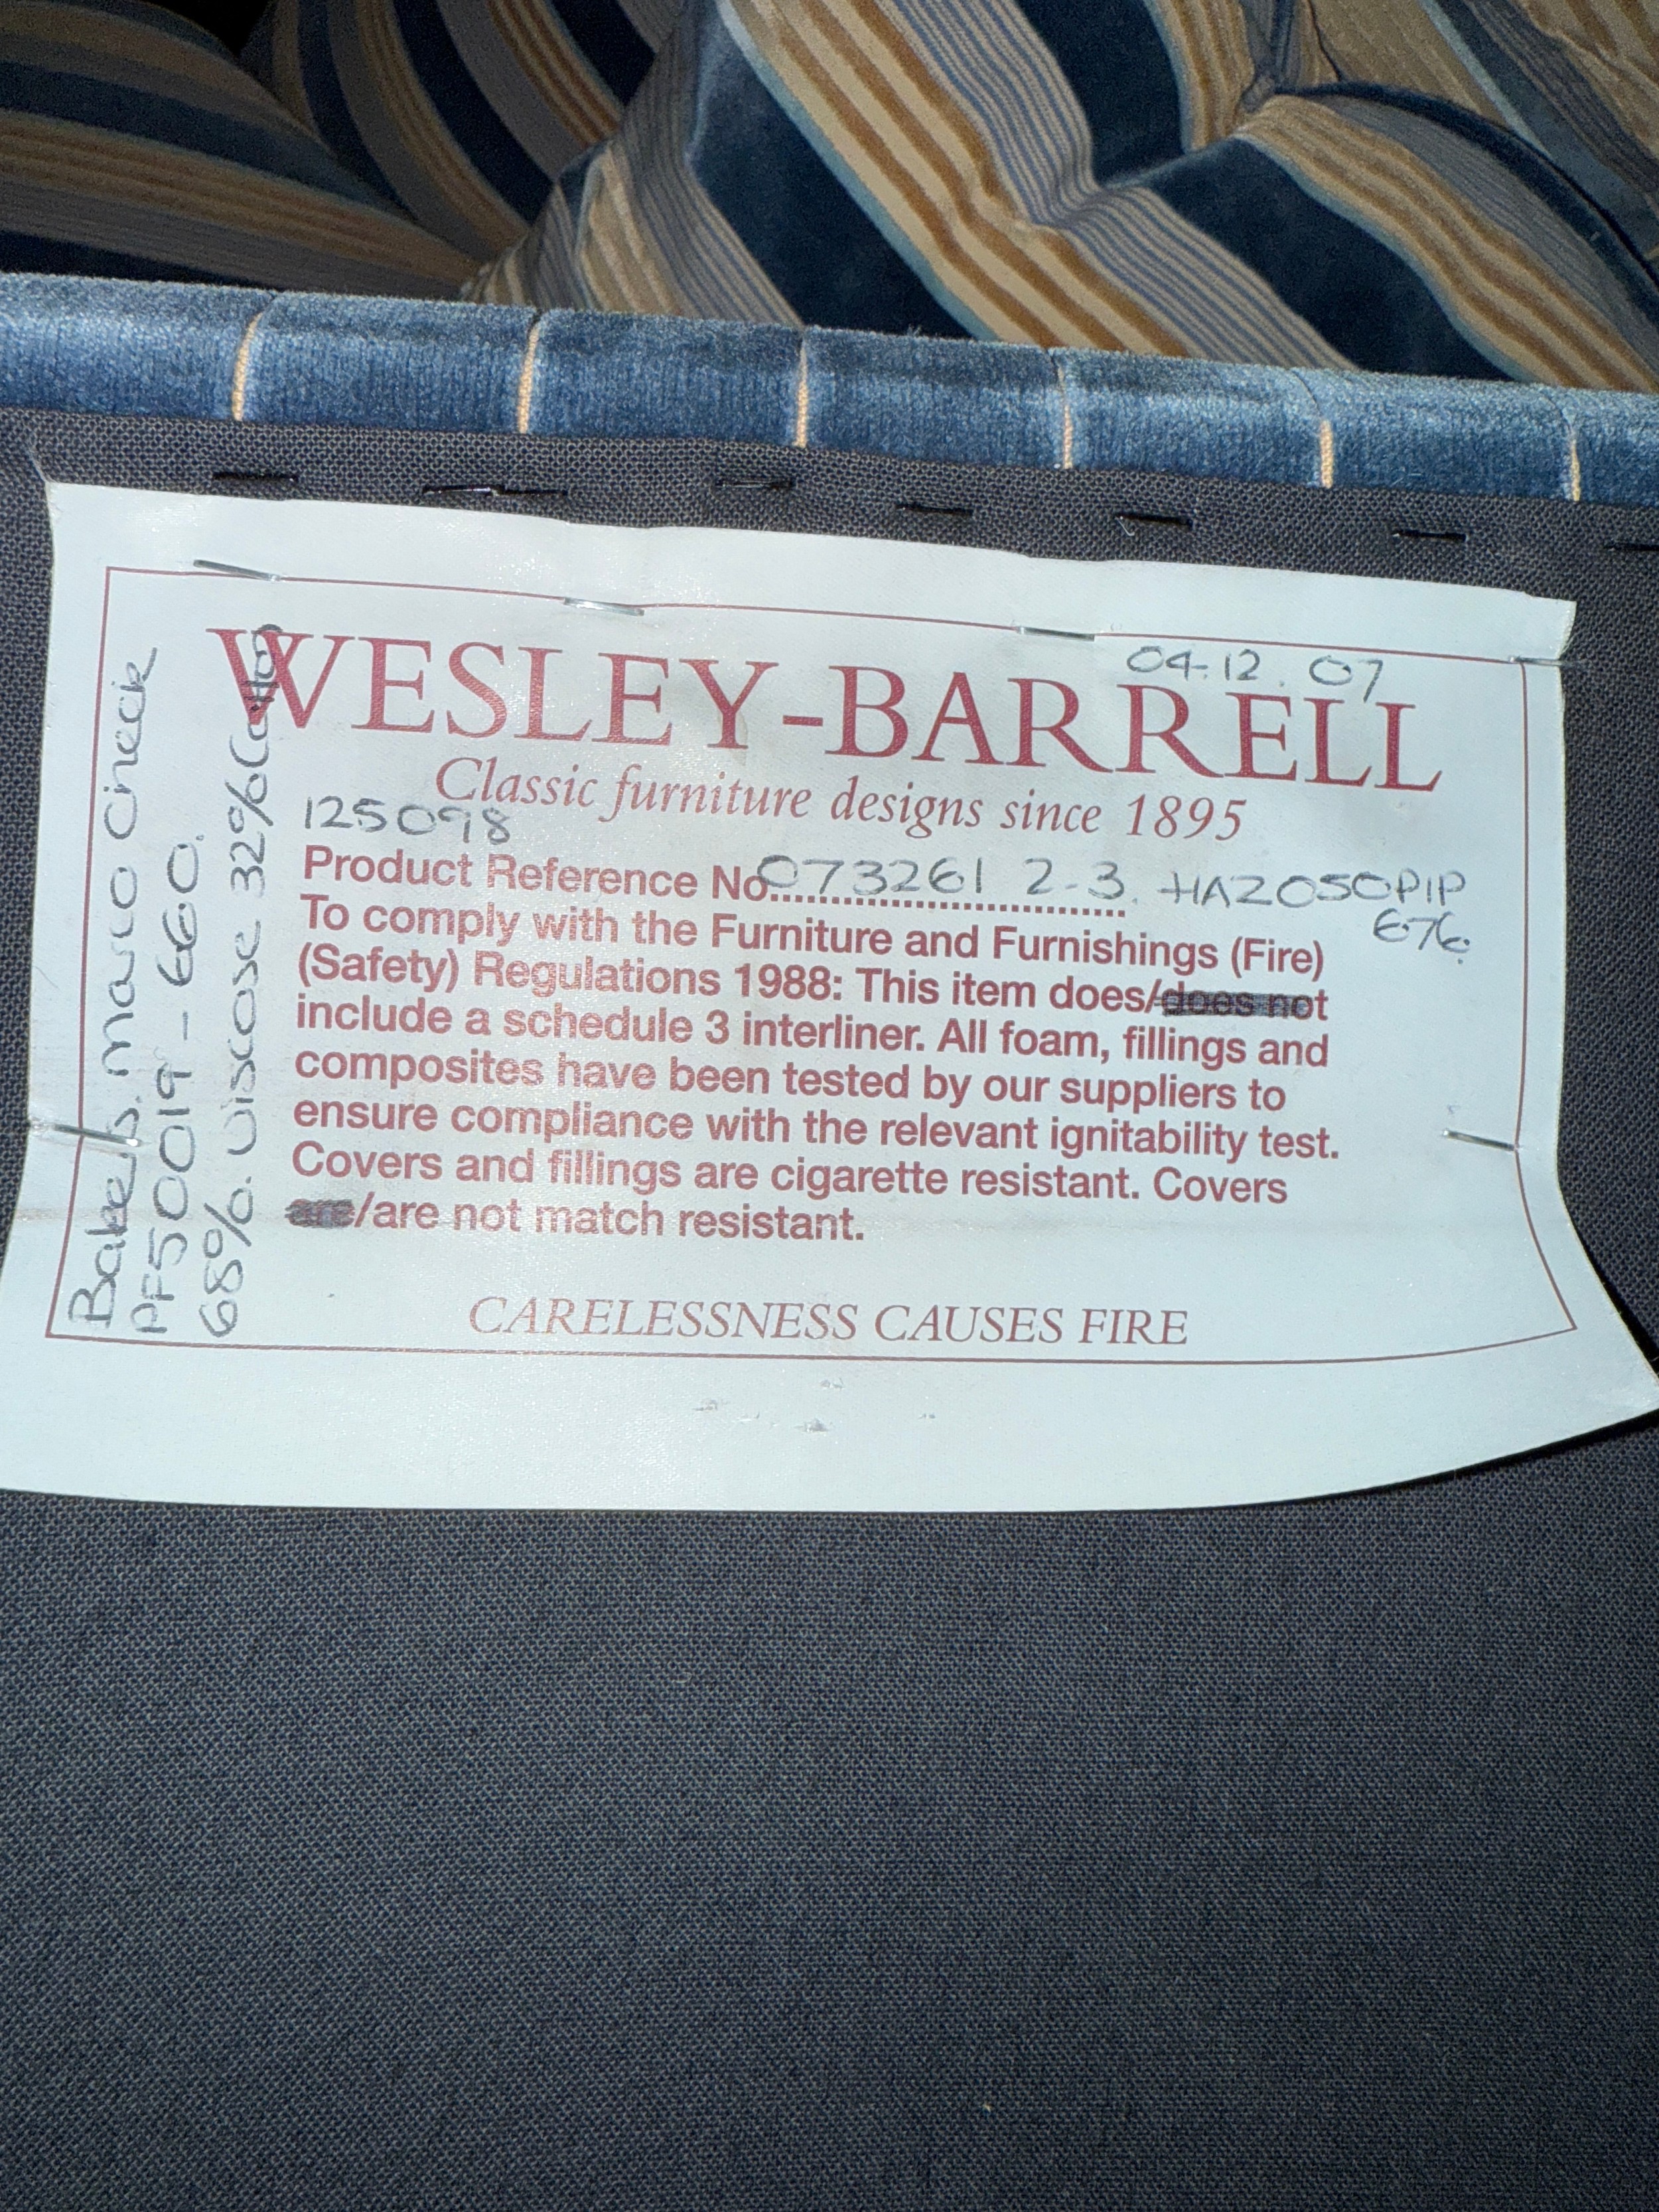 04.12.07
WESLEY-BARRELL
Classic furniture designs since 1895
125098
Product Reference No. 073261 2-3. HA2050PIP
676.
To comply with the Furniture and Furnishings (Fire)
(Safety) Regulations 1988: This item does/does not
include a schedule 3 interliner. All foam, fillings and
composites have been tested by our suppliers to
ensure compliance with the relevant ignitability test.
Covers and fillings are cigarette resistant. Covers
are/are not match resistant.
CARELESSNESS CAUSES FIRE
Bakers. Check
PF50019-660.
68% Viscose 32% Cotton